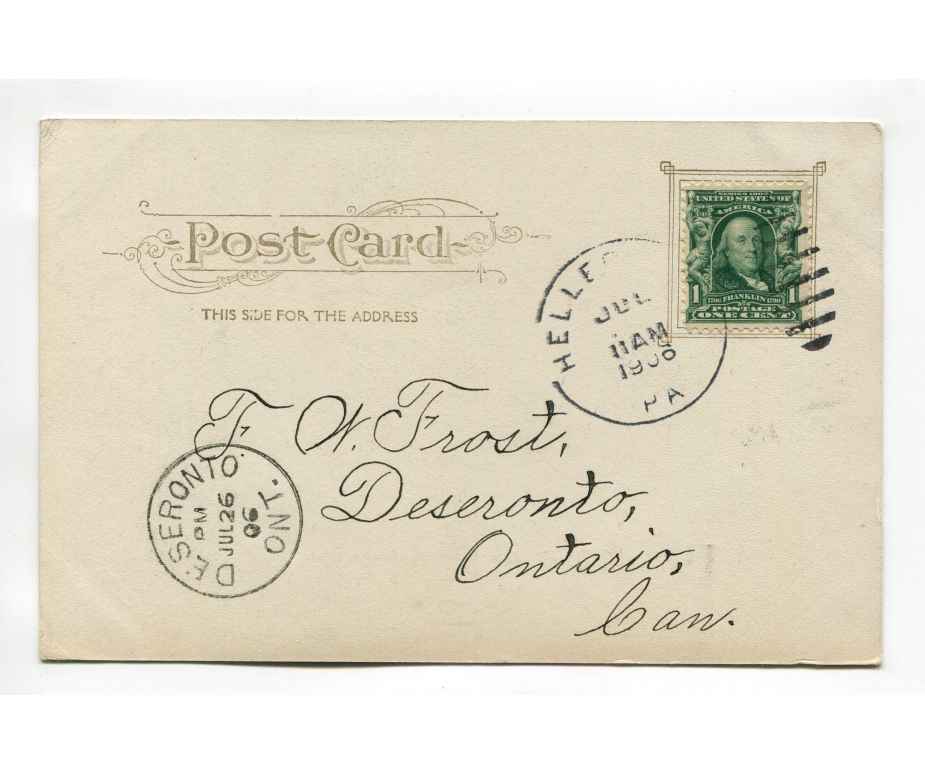 Post Card
THIS SIDE FOR THE ADDRESS
SERIES 1902
UNITED STATES OF
AMERICA
1 1706 FRANKLIN 1790 1
POSTAGE
ONE CENT
HELLE
JUL
11 AM
1906
PA
F. W. Frost,
Deseronto,
Ontario,
Can.
DESERONTO
PM
JUL 26
06
ONT.